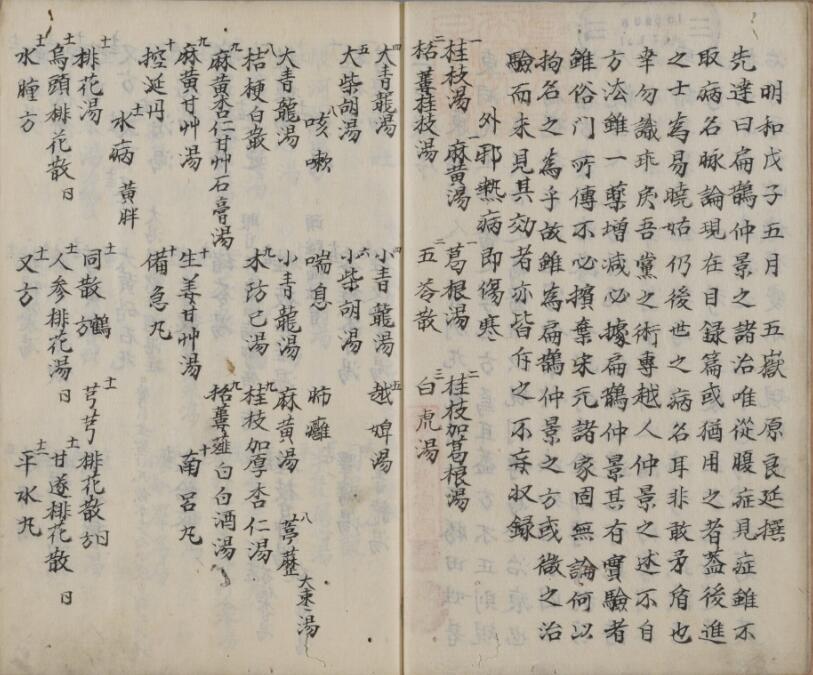 明和戊子五月 五嶽 原良延撰
先達曰扁鵲仲景之諸治唯從腹症見症雖不
取病名脉論現在目録篇或猶用之者蓋後進
之士為易曉姑仍後世之病名耳非敢矛盾也
幸勿識非戾吾黨之術專越人仲景之述不自
方法雖一藥增減必據扁鵲仲景其有實驗者
雖俗門所傳不必擯棄宋元諸家固無論何以
拘名之為乎故雖為扁鵲仲景之方或徵之治
驗而未見其効者亦皆存之不妄収録
外邪熱病即傷寒
一桂枝湯 一麻黄湯 一葛根湯 二桂枝加葛根湯
二栝蔞桂枝湯 二五苓散 三白虎湯
四大青龍湯 四小青龍湯 五越婢湯
五大柴胡湯 六小柴胡湯
咳嗽 喘息 肺癰
八大青龍湯 小青龍湯 麻黄湯 八葶藶大棗湯
九桔梗白散 九木防已湯 九桂枝加厚杏仁湯
九麻黄杏仁甘艸石膏湯 九栝蔞薤白白酒湯
九麻黄甘艸湯 十生姜甘艸湯 十南呂丸
十控涎丹 十備急丸
水病 黄胖
土桃花湯 土同散方鶴 土芎芎桃花散方同
土烏頭桃花散日 土人参桃花湯日 土甘遂桃花散日
土水腫方 土又方 土平水丸